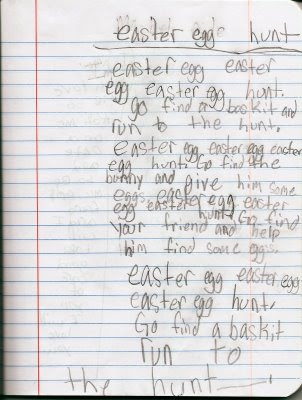 easter egg hunt
easter egg easter
egg easter egg hunt.
go find a baskit and
run to the hunt.
easter egg easter egg easter
egg hunt. Go find the
bunny and give him some
eggs. easter
egg easter egg easter
hunt. Go find
your friend and help
him find some eggs.
easter egg easter egg
easter egg hunt.
Go find a baskit
run to
the hunt